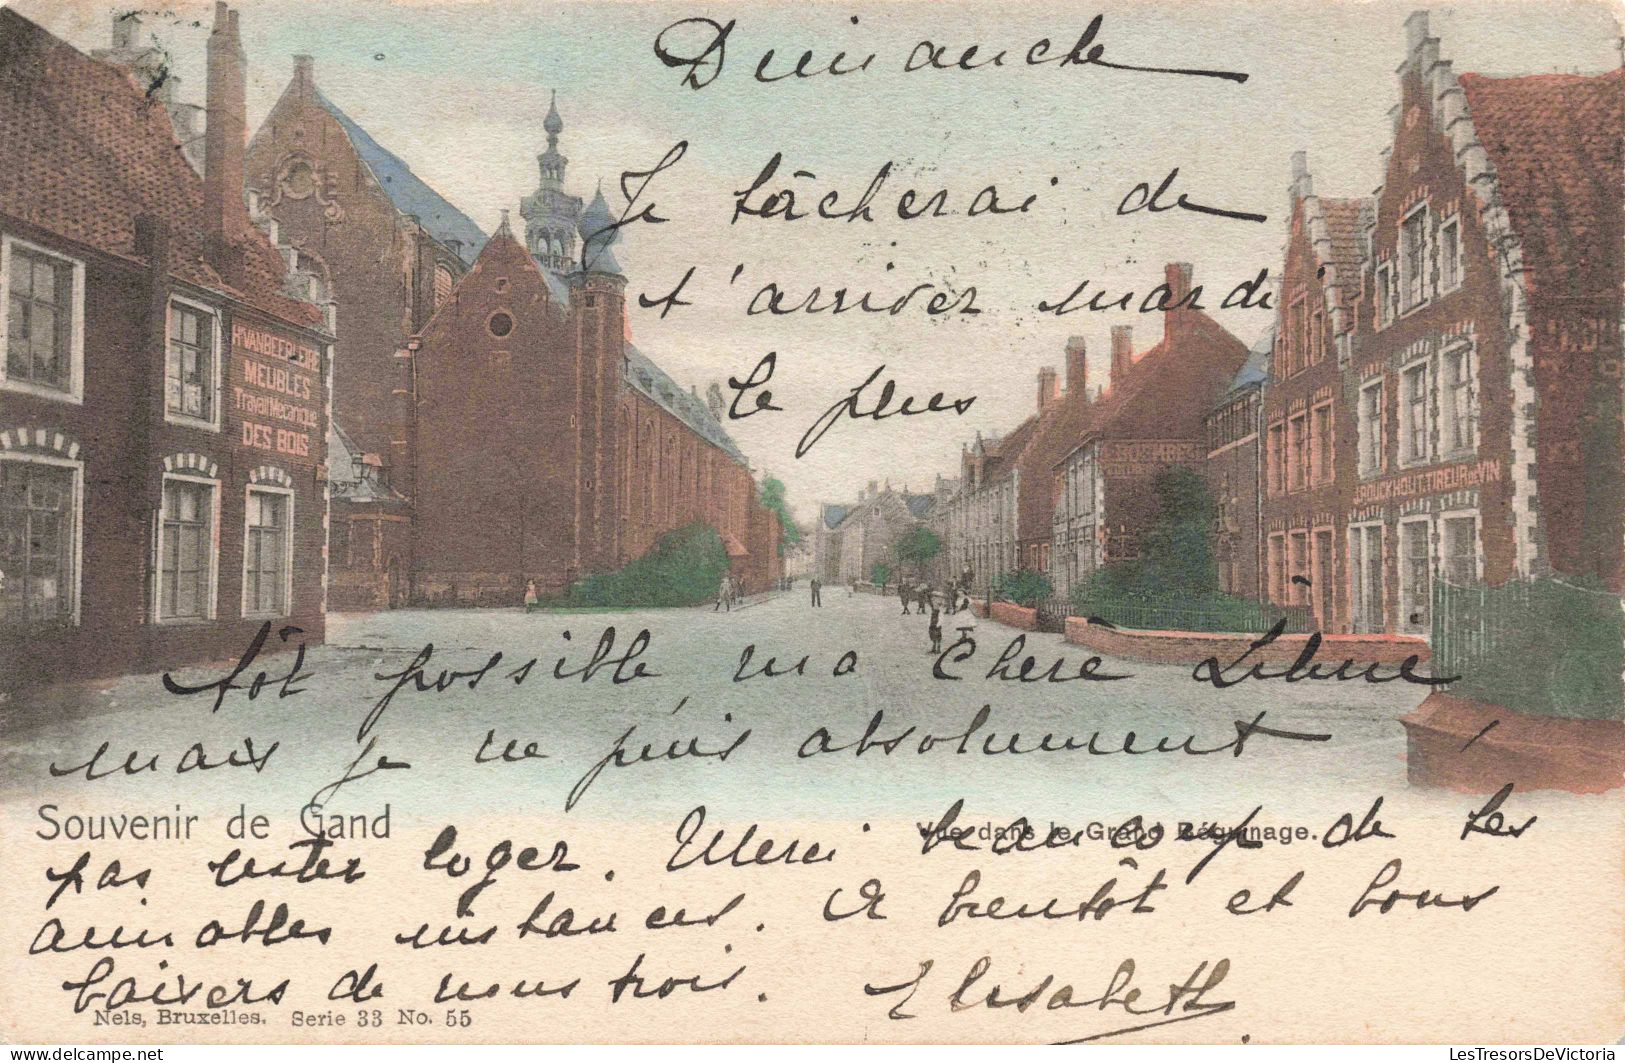 Dimanche
Je tâcherai de
t'arriver mardi
le plus
tôt possible, ma Chère
mais je ne puis absolument
pas rester loger. Merci beaucoup de tes
aimables instances. A bientôt et bons
baisers de nous trois. Elisabeth.
VANBEER
MEUBLES
Travail Mécanique
DES BOIS
TIREUR DE VIN
Souvenir de Gand
Vue dans le Grand Béguinage.
Nels, Bruxelles. Serie 33 No. 55
LesTresorsDeVictoria